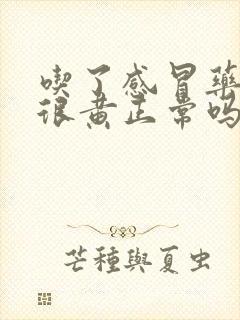 喫了感冒藥
很黄正常嗎
芒種與夏虫